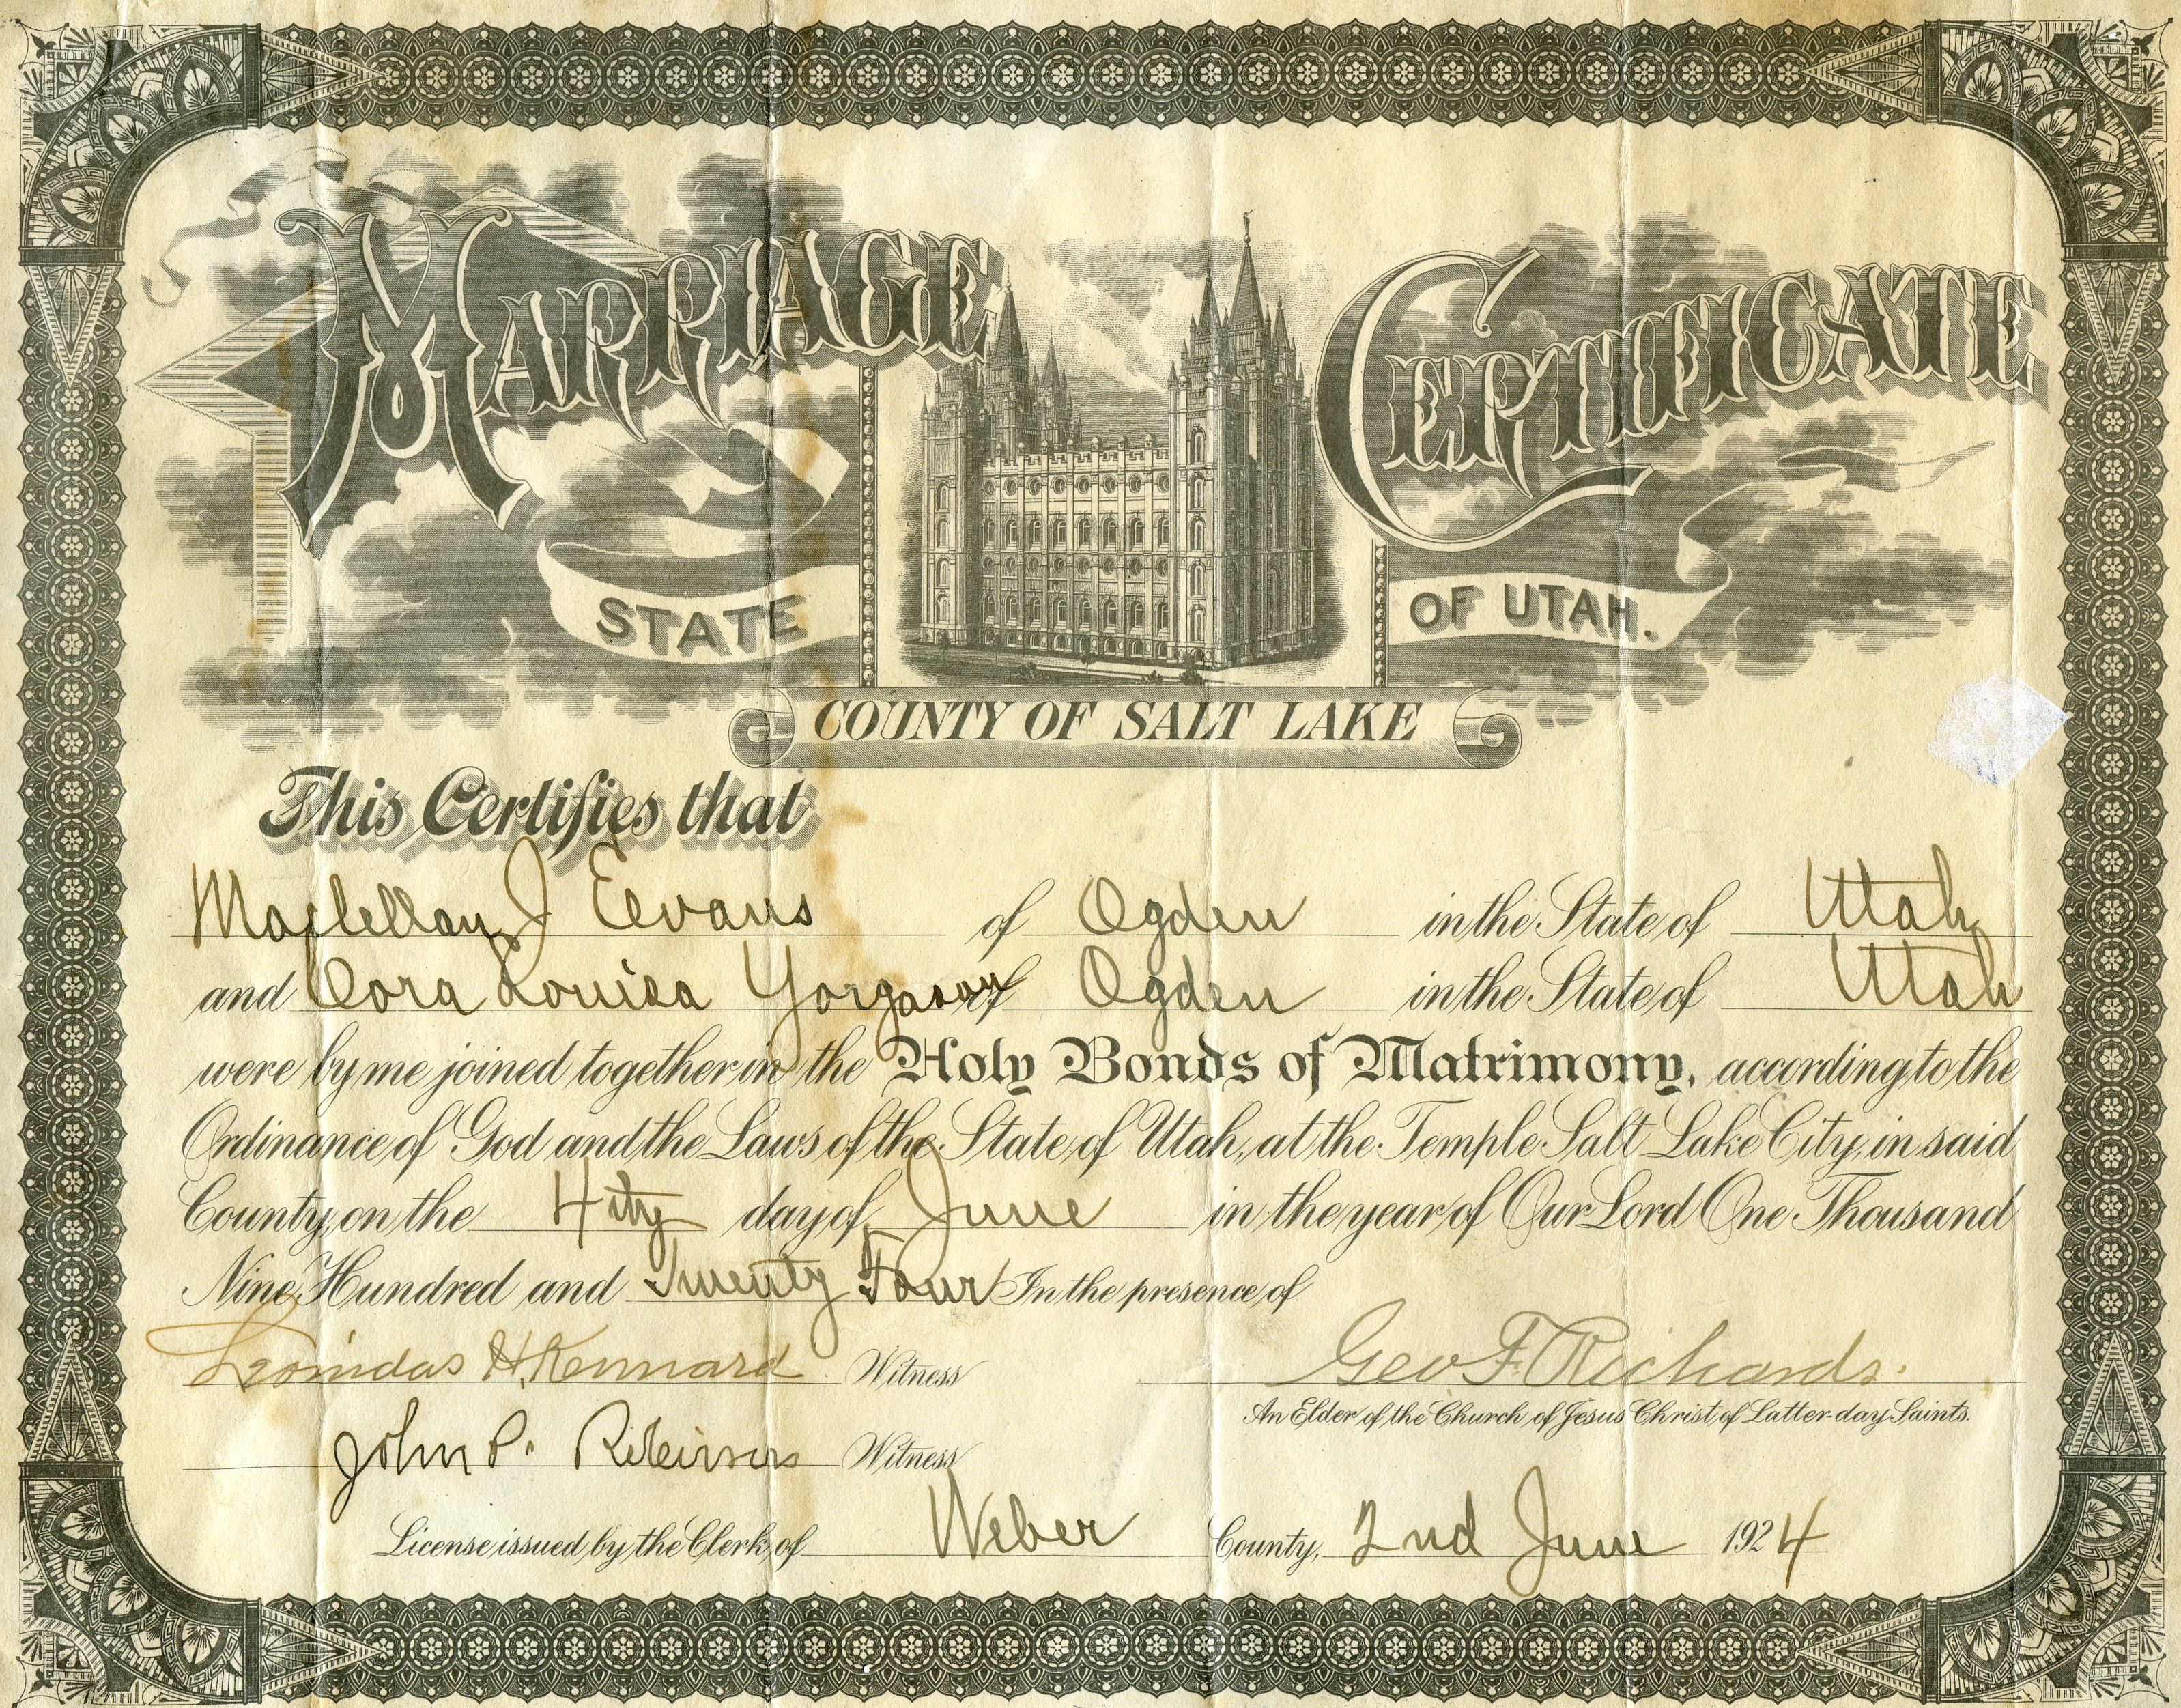 MARRIAGE CERTIFICATE
STATE OF UTAH.
COUNTY OF SALT LAKE
This Certifies that
Maclellan J Evans of Ogden in the State of Utah
and Cora Louisa Yorgason of Ogden in the State of Utah
were by me joined together in the Holy Bonds of Matrimony, according to the
Ordinance of God and the Laws of the State of Utah, at the Temple Salt Lake City, in said
County, on the 4th day of June in the year of Our Lord One Thousand
Nine Hundred and Twenty Four In the presence of
Leonidas H. Kennard Witness Geo F. Richards.
An Elder of the Church of Jesus Christ of Latter-day Saints.
John P. Witness
License issued by the Clerk of Weber County, 2nd June 1924